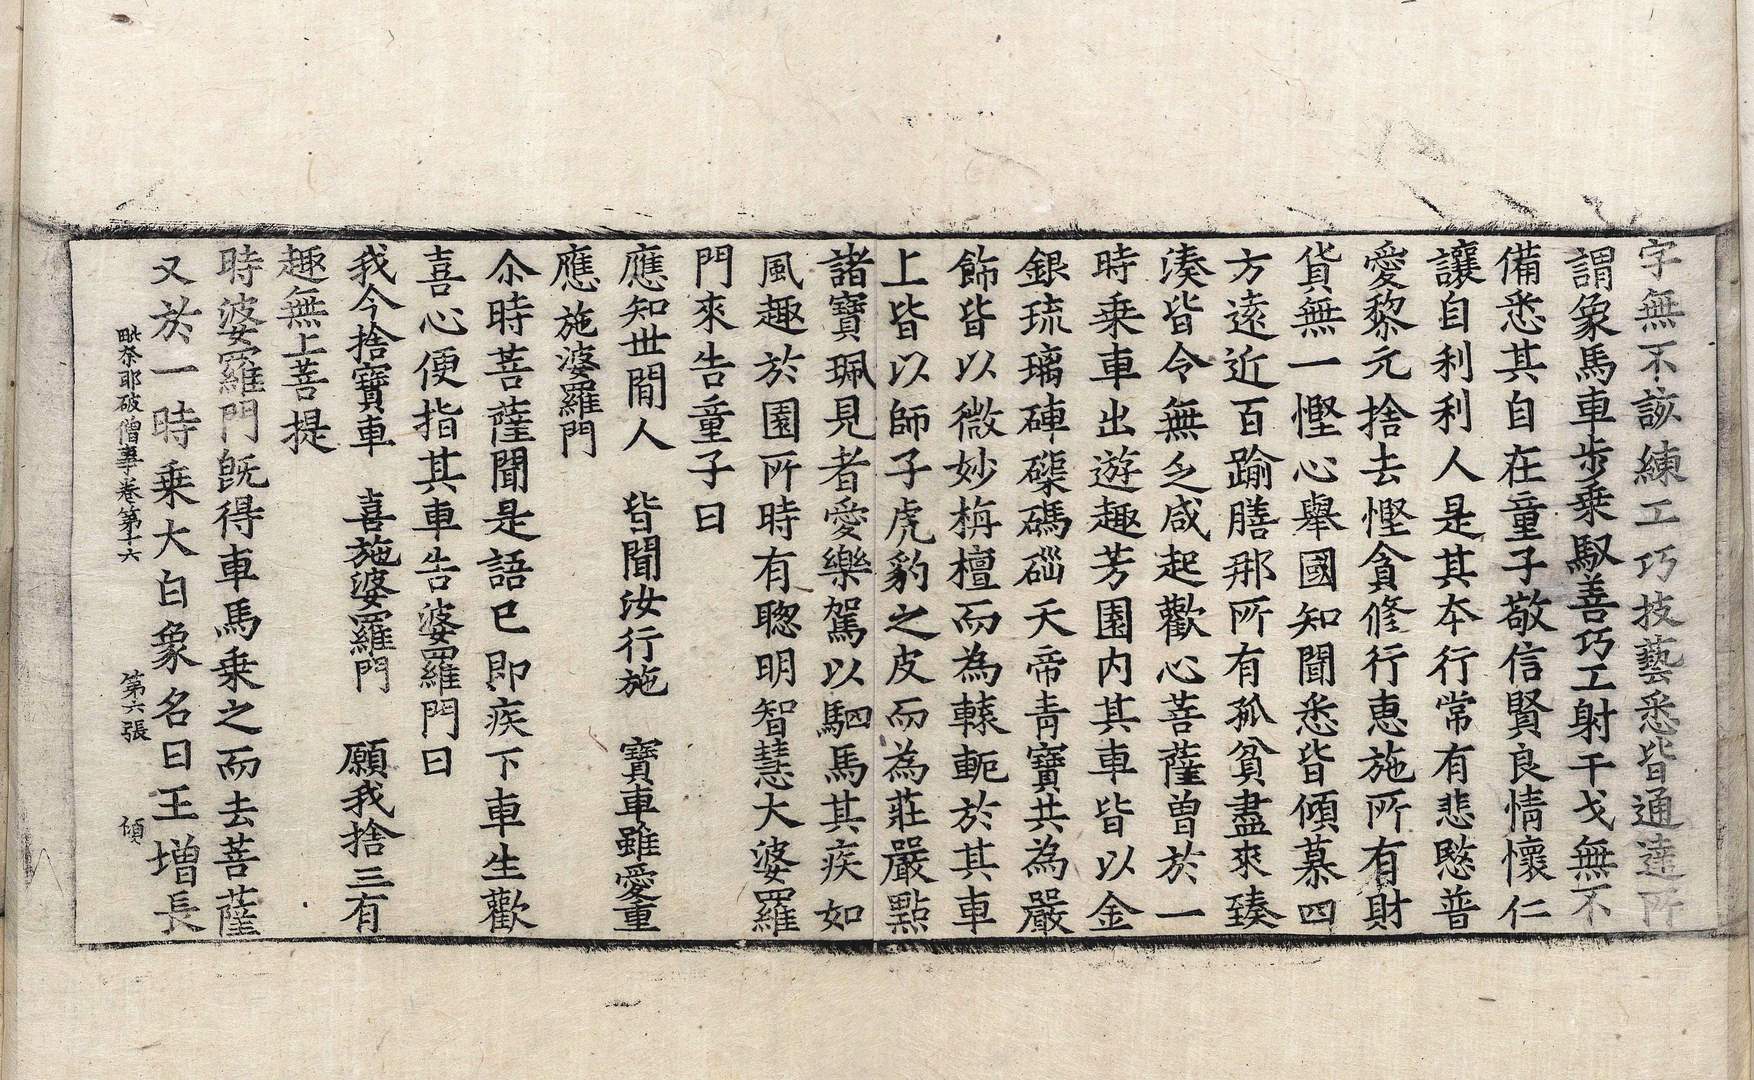 字無不該練工巧技藝悉皆通達所
謂象馬車步乗馭善巧工射干戈無不
備悉其自在童子敬信賢良情懷仁
讓自利利人是其本行常有悲愍普
愛黎元捨去慳貪修行惠施所有財
貨無一慳心舉國知聞悉皆傾慕四
方遠近百踰膳那所有孤貧盡來臻
湊皆令無乏咸起歡心菩薩曽於一
時乗車出遊趣芳園内其車皆以金
銀琉璃硨磲碼碯天帝青寶共為嚴
飾皆以微妙栴檀而為轅軛於其車
上皆以師子虎豹之皮而為莊嚴點
諸寶珮見者愛樂駕以駟馬其疾如
風趣於園所時有聦明智慧大婆羅
門來告童子曰
應知世間人　皆聞汝行施　寶車雖愛重
應施婆羅門
尒時菩薩聞是語已即疾下車生歡
喜心便指其車告婆羅門曰
我今捨寶車　喜施婆羅門　願我捨三有
趣無上菩提
時婆羅門旣得車馬乗之而去菩薩
又於一時乗大白象名曰王增長
毗奈耶破僧事卷第十六　第六張　傾